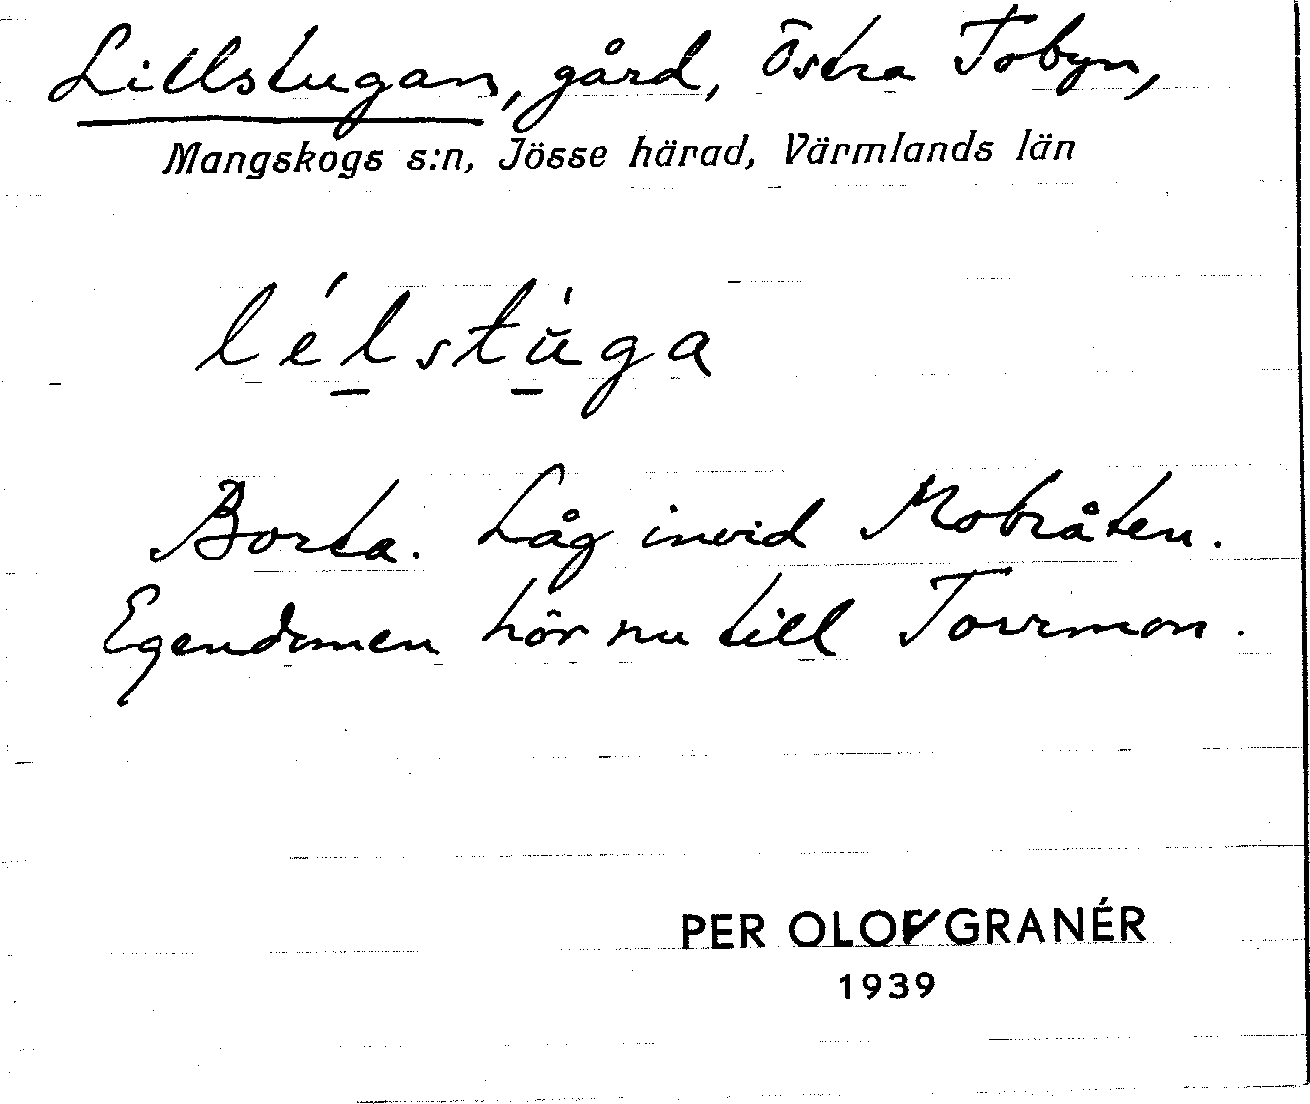 Lillstugan, gård, Östra Tobyn,
Mangskogs s:n, Jösse härad, Värmlands län
lélstùga
Borta. Låg invid Mobråten.
Egendomen hör nu till
PER OLOF GRANÉR
1939